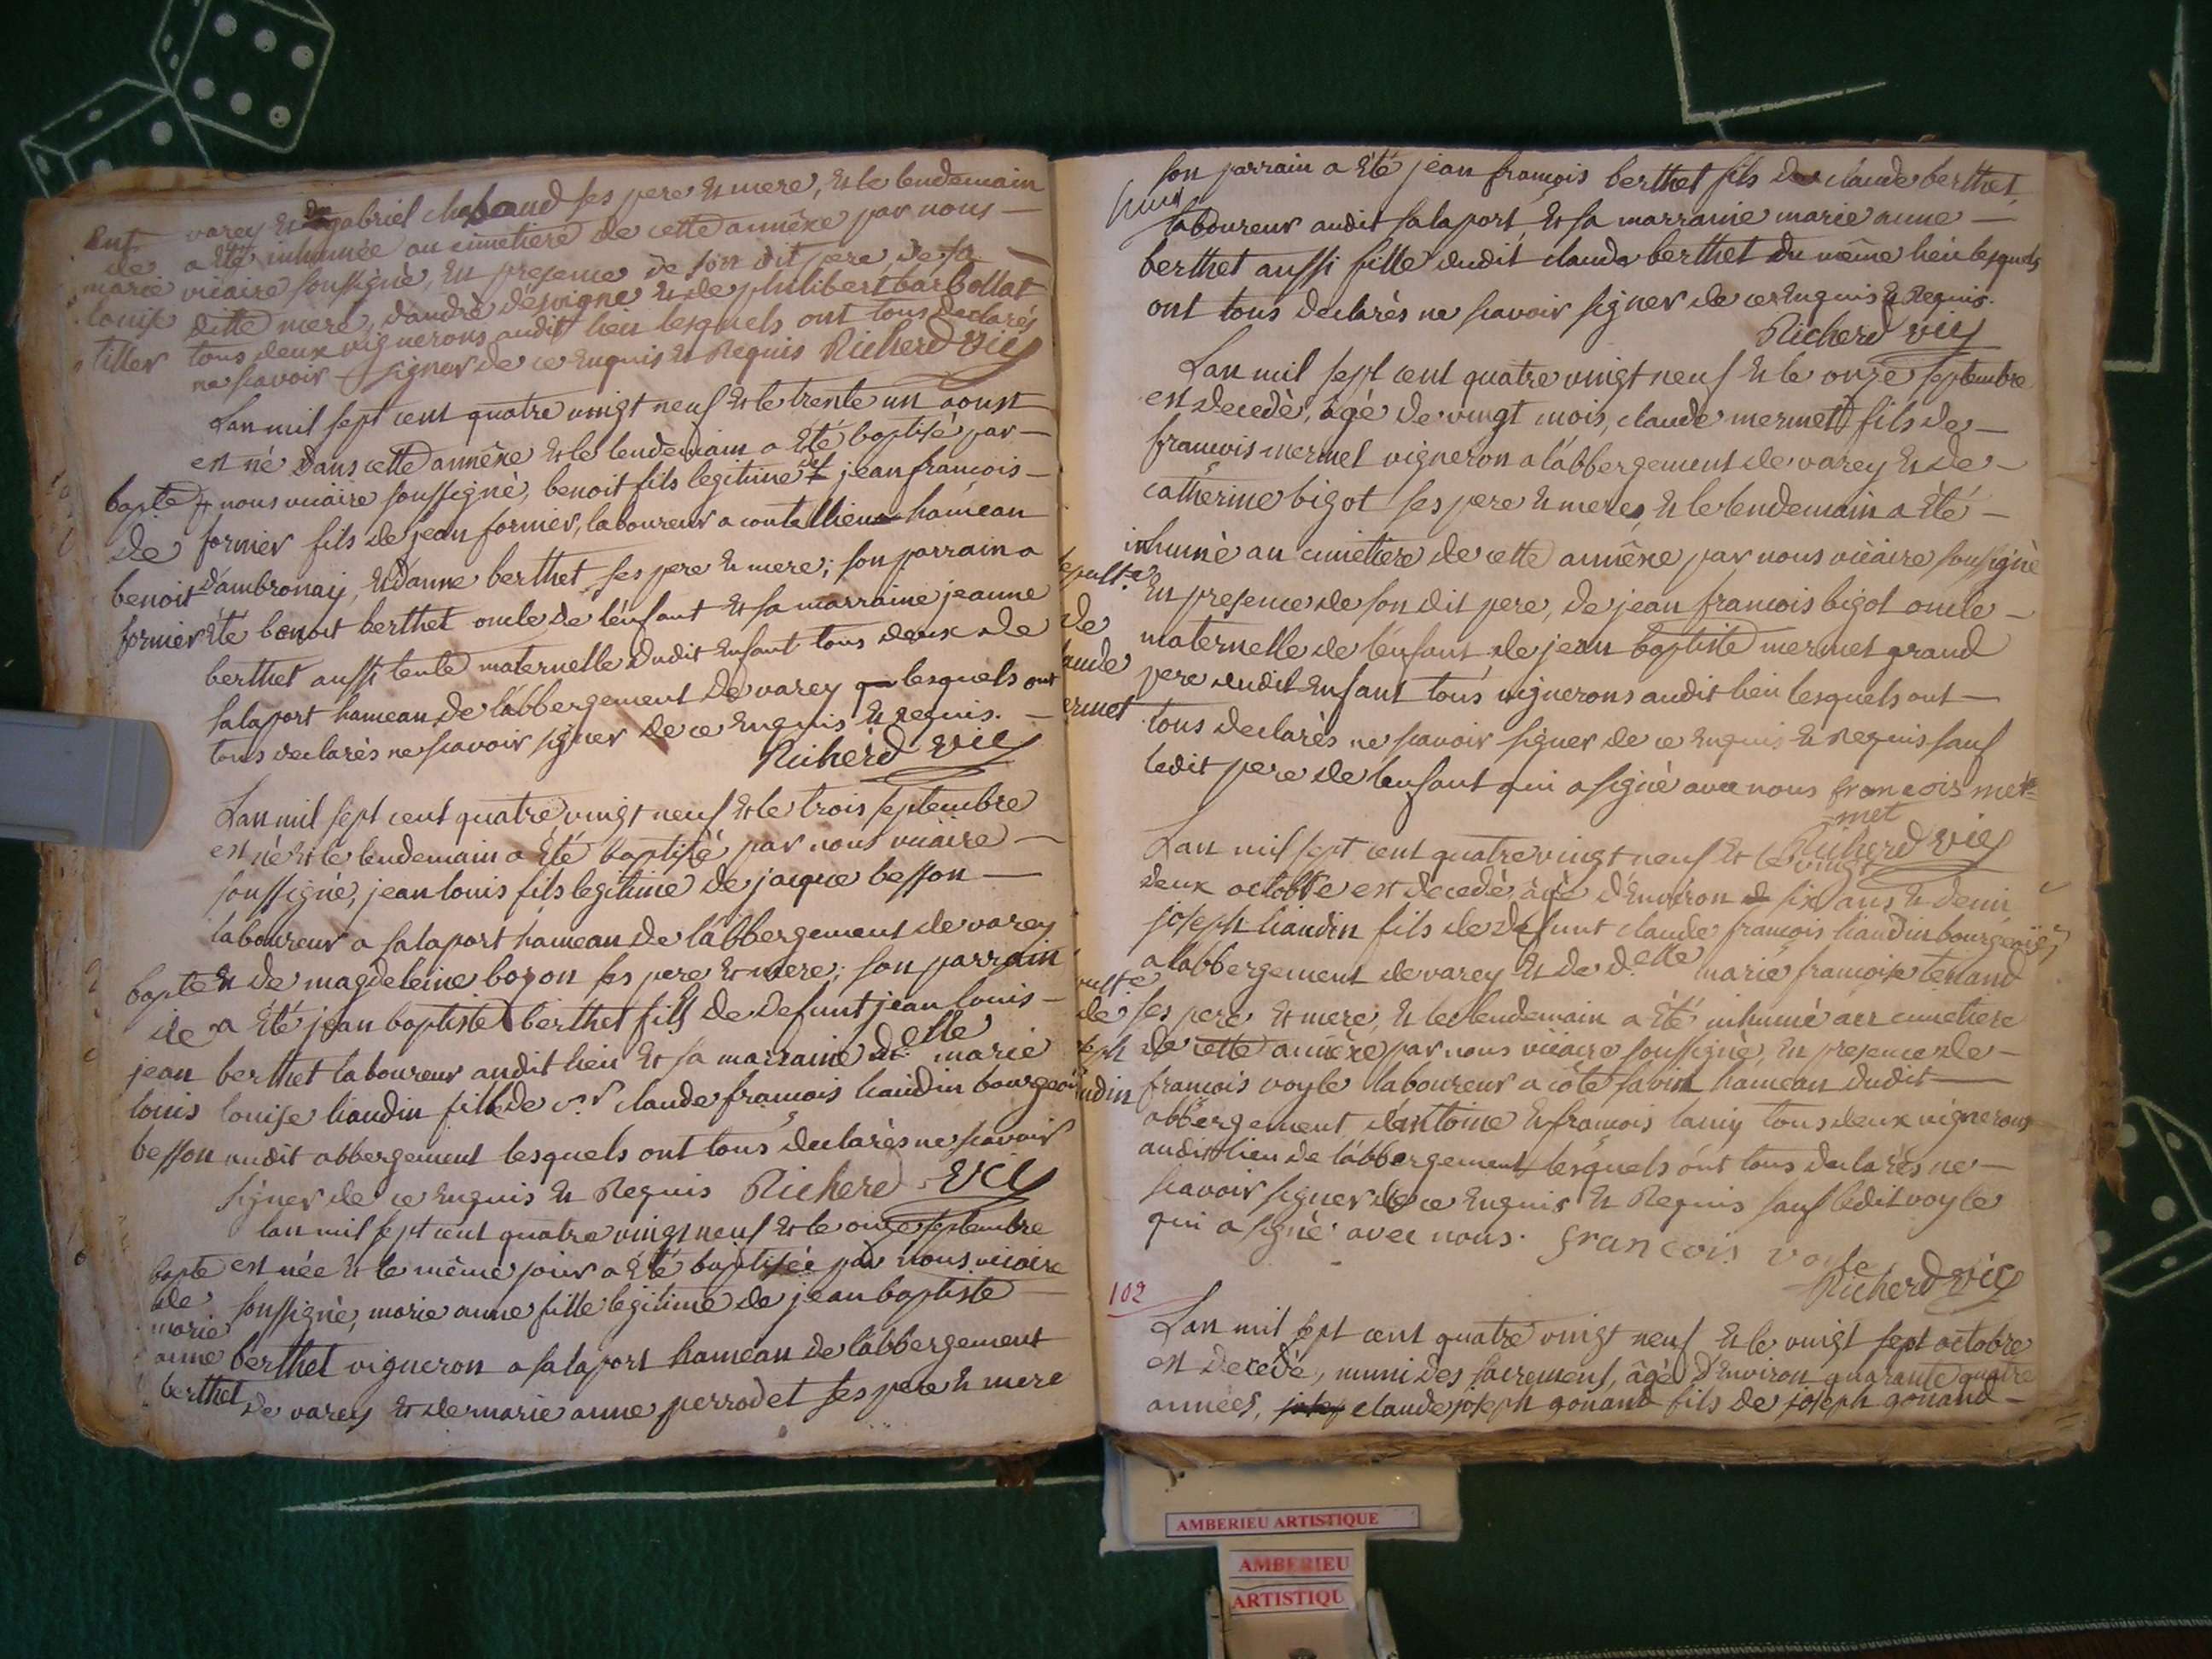 varey Et de gabriel chaband ses pere Et mere, Et le lendemain
a Eté inhumée au cimetiere de cette annêxe par nous —
vicaire soussignè, En presence de son dit pere de sa
ditte mere, dandrè desvigne Et de philibert barbollat
tous deux vignerons audit lieu lesquels ont tous declarés
ne scavoir signer de ce Enquis Et Requis Richerd vic
Ent
de
marie
louise
tiller
Lan mil sept cent quatre vingt neuf Et le trente un aoust
est nè dans cette annêxe Et le lendemain a Eté baptisé par —
nous vicaire soussignè, benoit fils legitime de jean francois —
formier fils de jean formier, laboureur a contellieux hameau
d'ambronay, Et d'anne berthet ses pere Et mere; son parrain a
Eté benoit berthet oncle de l'enfant Et sa marraine jeanne
berthet aussi tente maternelle dudit Enfant tous deux de
salaport hameau de l'abbergement de varey lesquels ont
tous declarès ne scavoir signer de ce Enquis Et requis. —
Richerd vic
bapte
de
benoit
formier
Lan mil sept cent quatre vingt neuf Et le trois septembre
est nè Et le lendemain a Eté baptisé par nous vicaire —
soussignè, jean louis fils legitime de jacque besson —
laboureur a salaport hameau de l'abbergement de varey
Et de magdeleine bozon ses pere Et mere; son parrain
a Eté jean baptiste berthet fils de defunt jean louis —
berthet laboureur audit lieu Et sa marraine d.elle marie
louise liaudin fille de s.r claude francois liaudin bourgeois
audit abbergement lesquels ont tous declarès ne scavoir
signer de ce Enquis Et Requis Richerd vic
bapte
de
jean
louis
besson
lan mil sept cent quatre vingt neuf Et le onze septembre
est née Et le même jour a Eté baptisée par nous vicaire
soussignè, marie anne fille legitime de jean baptiste —
berthet vigneron a salaport hameau de l'abbergement
de varey Et de marie anne perrodet ses pere Et mere
bapte
de
marie
anne
berthet
son parrain a Eté jean francois berthet fils de claude berthet,
laboureur audit salaport, Et sa marraine marie anne —
berthet aussi fille dudit claude berthet du même lieu lesquels
ont tous declarès ne scavoir signer de ce Enquis Et Requis.
Richerd vic
Lan mil sept cent quatre vingt neuf Et le onze septembre
est decedè, âgè de vingt mois, claude mermet fils de —
francois mermet vigneron a l'abbergement de varey Et de —
catherine bigot ses pere Et mere, Et le lendemain a Eté —
inhumè au cimetiere de cette annêxe par nous vicaire soussignè
En presence de son dit pere, de jean francois bigot oncle —
maternelle de l'enfant, de jean baptiste mermet grand
pere dudit Enfant tous vignerons audit lieu lesquels ont —
tous declarès ne scavoir signer de ce Enquis Et Requis sauf
ledit pere de lenfant qui a signè avec nous francois mer=
met
Richerd vic
sepult.e
de
aude
ermet
Lan mil sept cent quatre vingt neuf Et le vingt
deux octobre est decedè, âgè d'Environ six ans Et demi
joseph liaudin fils de defunt claude francois liaudin bourgeois
a labbergement de varey Et de d.elle marie francoise tenand
ses pere Et mere, Et le lendemain a Eté inhumé au cimetiere
de cette annêxe par nous vicaire soussignè, En presence de —
francois voyle laboureur a côte savin hameau dudit —
abbergement, d'antoine Et francois lamy tous deux vignerons
audit lieu de l'abbergement lesquels ont tous declarès ne —
scavoir signer de ce Enquis Et Requis sauf ledit voyle
qui a signè avec nous. francois voyle
Richerd vic
pult.e
de
seph
udin
102
Lan mil sept cent quatre vingt neuf Et le vingt sept octobre
est decedè, muni des sacremens, âgè d'Environ quarante quatre
années, claude joseph gonand fils de joseph gonand —
AMBERIEU ARTISTIQUE
AMBERIEU
ARTISTIQU